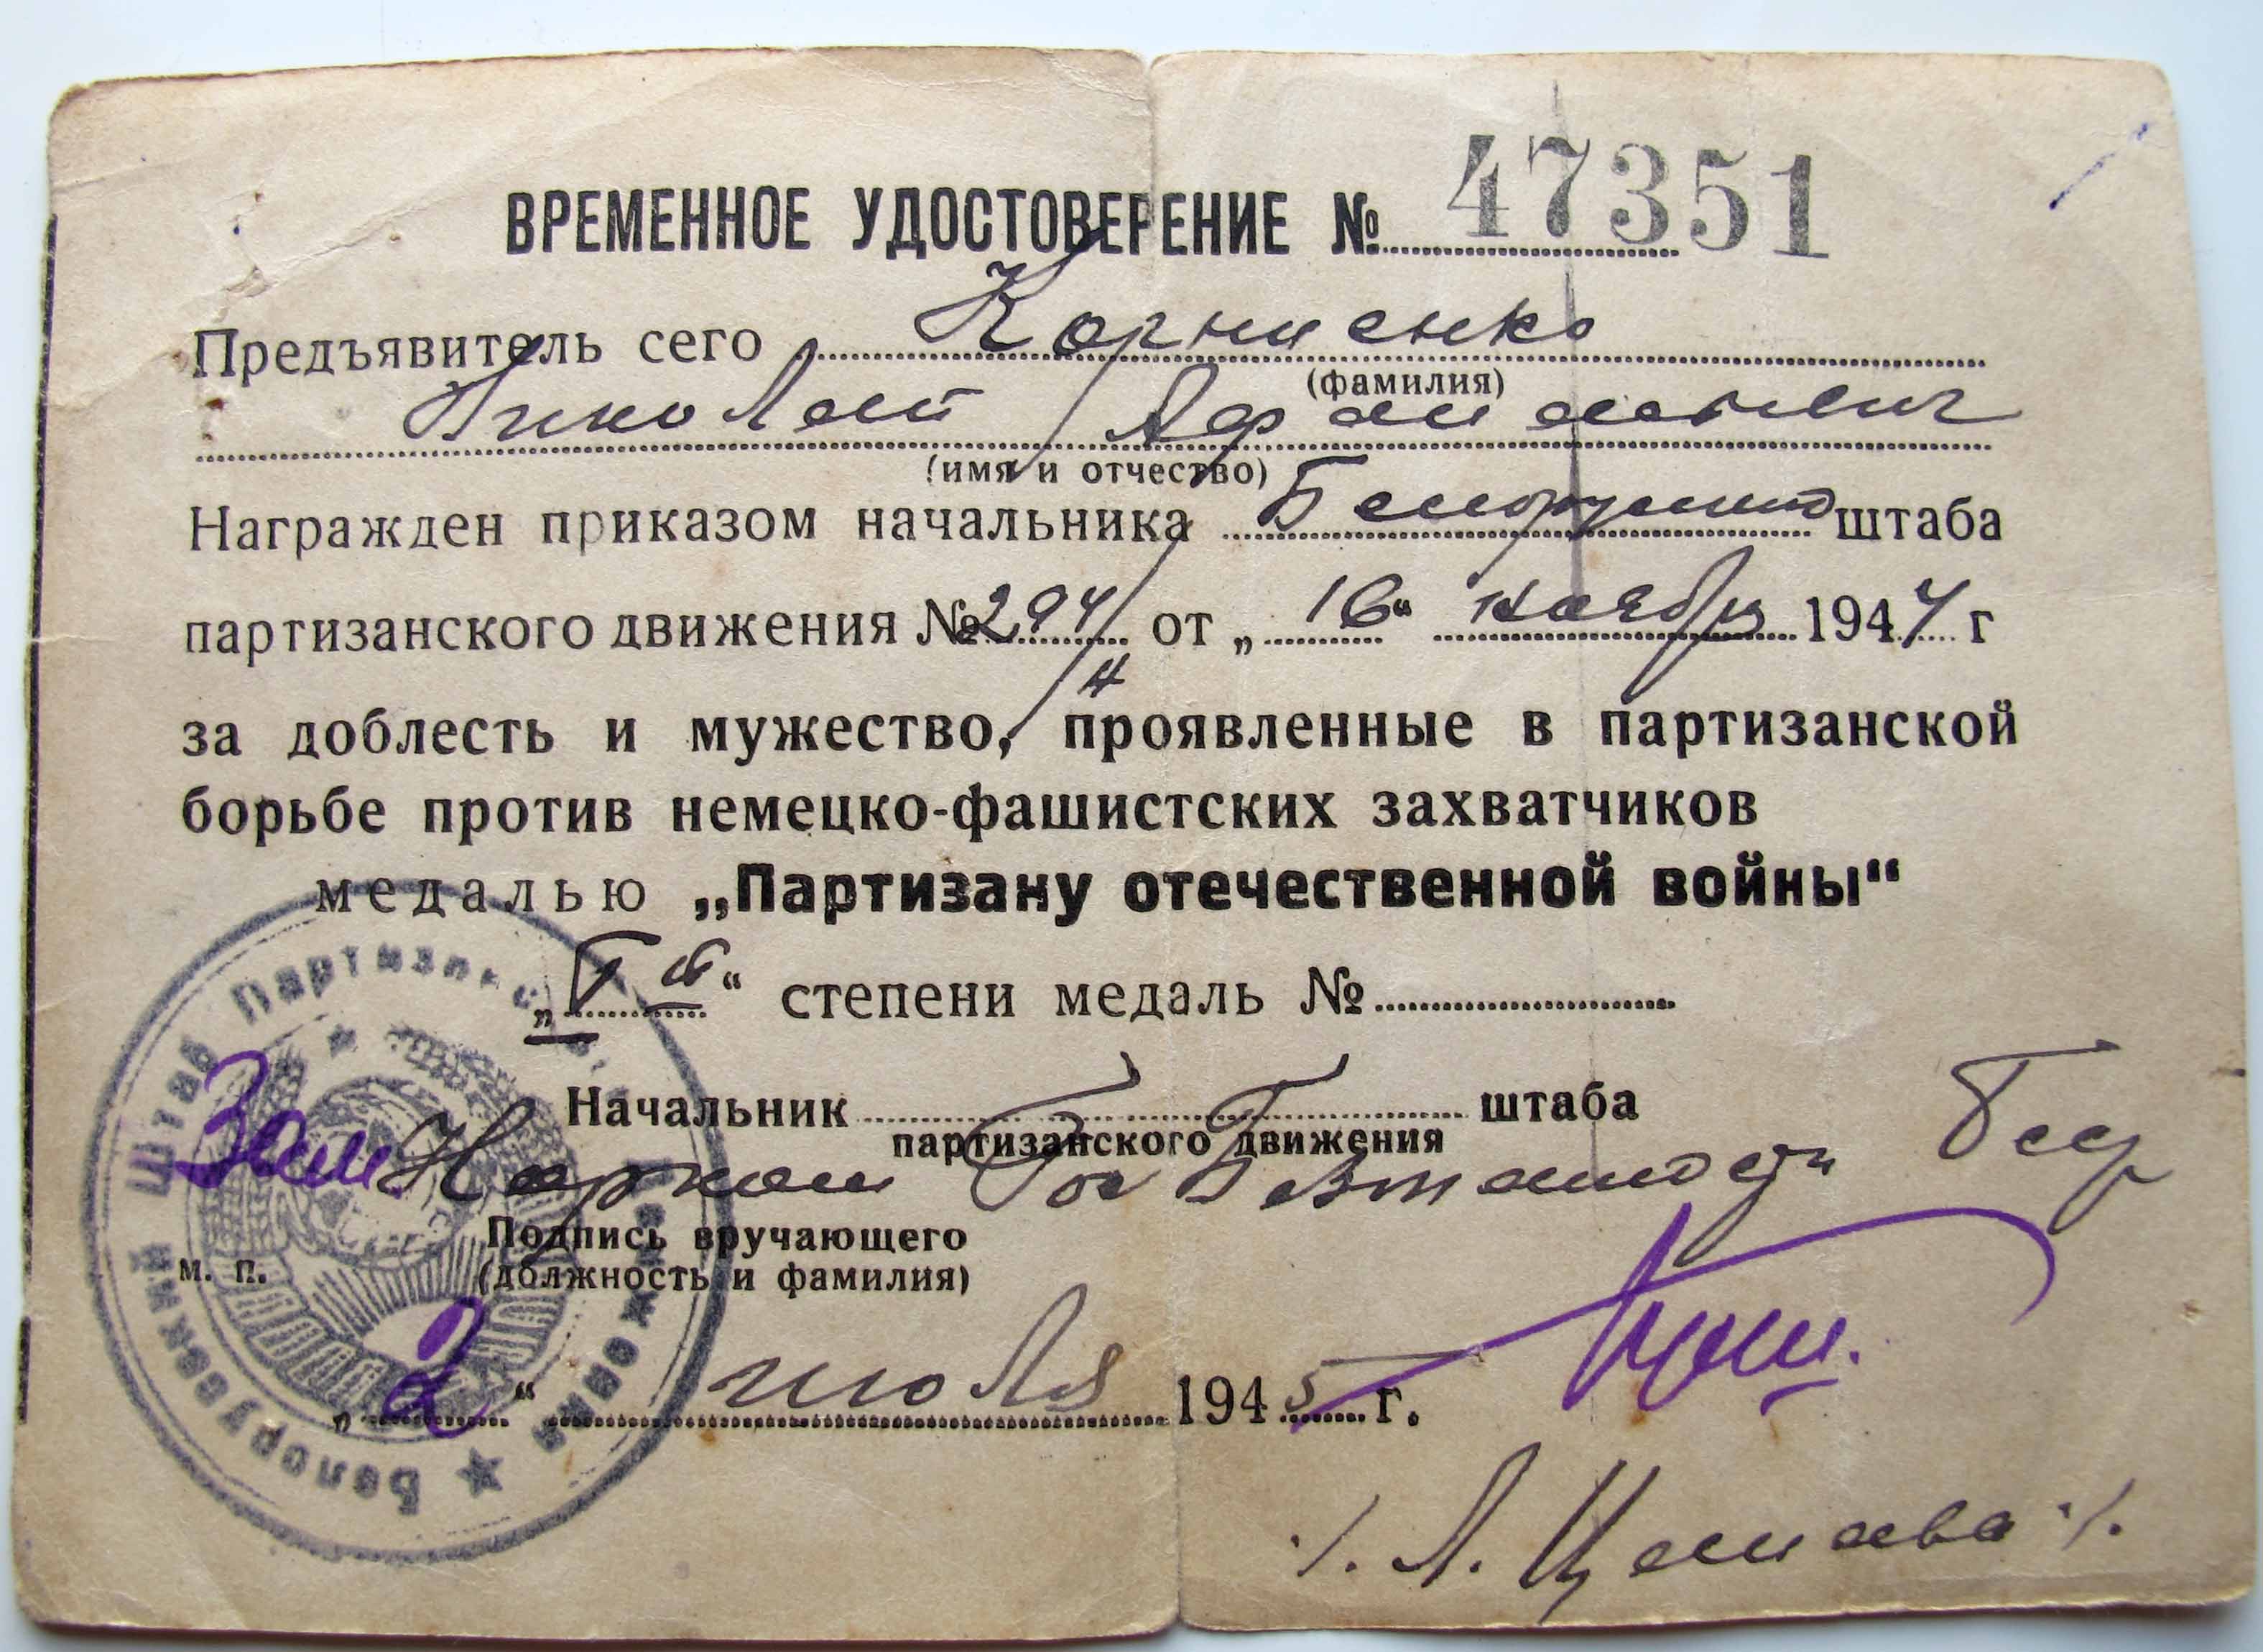 ВРЕМЕННОЕ УДОСТОВЕРЕНИЕ № 47351
Предъявитель сего Корниенко
(фамилия)
Николай
(имя и отчество)
Награжден приказом начальника штаба
партизанского движения № 294/н от „16“ ноября 1944 г
за доблесть и мужество, проявленные в партизанской
борьбе против немецко-фашистских захватчиков
медалью „Партизану отечественной войны“
„I й“ степени медаль №
Начальник штаба
партизанского движения
Зам. Нарком Гос Безопасности Бсср
Подпись вручающего
(должность и фамилия)
м. п.
„2“ июля 1945 г.
Белорусский Штаб Партизанского Движения